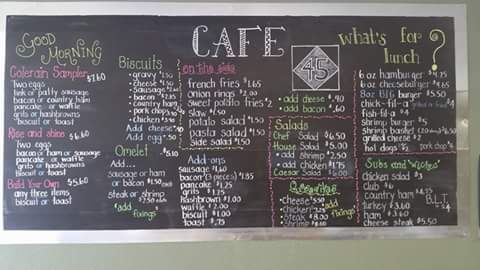 CAFE
GOOD MORNING
Colerain Sampler $7.60
Two eggs
link or patty sausage
bacon or country ham
pancake or waffle
grits or hashbrowns
biscuit or toast
Rise and shine $6.60
Two eggs
bacon or ham or sausage
pancake or waffle
grits or hashbrowns
biscuit or toast
Build Your Own $5.60
any three items
biscuit or toast
Biscuits
• gravy $1.50
• cheese $1.50
• Sausage $2.00
• bacon
• country ham
• pork chop
• chicken
Add cheese
Add egg
Omelet $5.10
Add...
sausage or ham
or bacon $1.50
steak or shrimp
• add fixings
on the side
french fries $1.65
Onion rings $2.00
Sweet potato fries $2
slaw $1.50
potato salad $1.50
pasta salad $1.50
side salad $1.50
Add-ons
sausage $1.60
bacon (3 pieces) $1.35
pancake $1.25
grits $1.25
hashbrown $1.00
waffle $2.00
biscuit $1.00
toast $.75
45
• add cheese $.40
• add bacon $.60
Salads
Chef Salad $6.50
House Salad $5.00
• add Shrimp $2.50
• add chicken
Caesar Salad $6.00
• Cheese
• chicken
• Steak $8.00
• Shrimp
• add fixings
what's for lunch?
6 oz hamburger
6 oz cheeseburger
8oz BIG burger $5.50
chick-fil-a
fish-fil-a
shrimp burger
shrimp basket
grilled cheese
hot dogs
Subs and
chicken salad $3
club $6
country ham
turkey $3.60
ham $3.60
cheese steak $5.50
B.L.T. $4